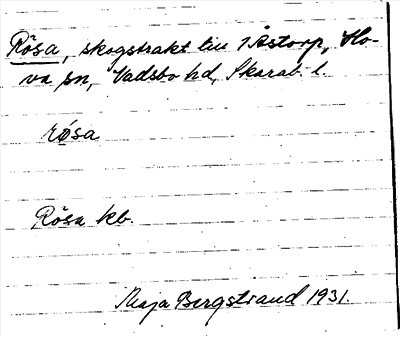 Rösa, skogstrakt till 7 Åstorp, Ho-
va sn, Vadsbo hd, Skarab. l.
rösa
Rösa kb.
Maja Bergstrand 1931.